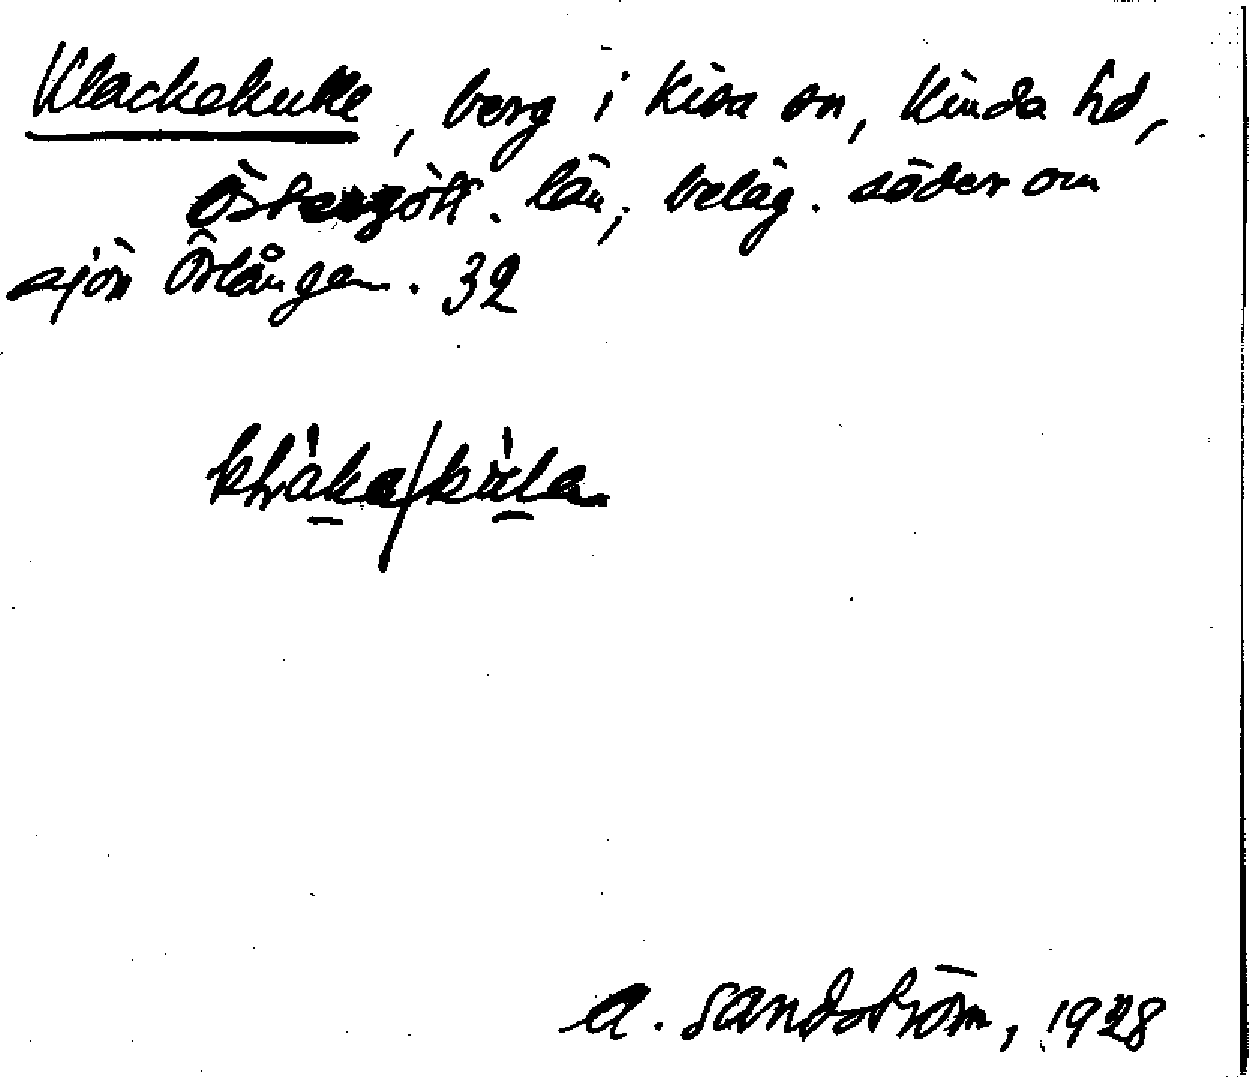 Klackekulle, berg i Kisa sn, Kinda hd,
Östergötl. län, beläg. söder om
sjön Örlången. 32
klàka/kùla
A. Sandström, 1928